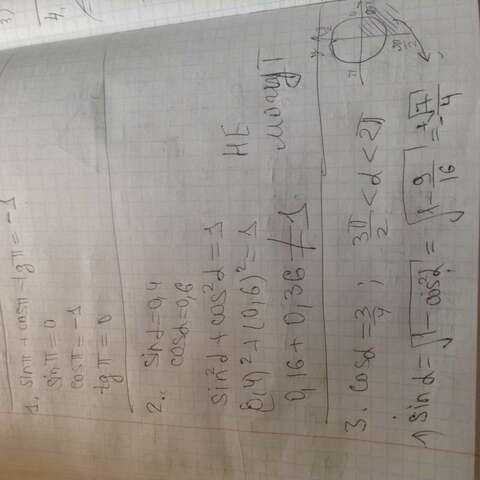 3)
4.
1. sin π + cos π - tg π = -1
sin π = 0
cos π = -1
tg π = 0
2. sin α = 0,4
cos α = 0,6
sin²α + cos²α = 1
(0,4)² + (0,6)² = 1
0,16 + 0,36 ≠ 1
НЕ
могут
3. cos α = 3/4 ; 3π/2 < α < 2π
1) sin α = √(1 - cos²α) = √(1 - 9/16) = ± √7/4
π
3π/2